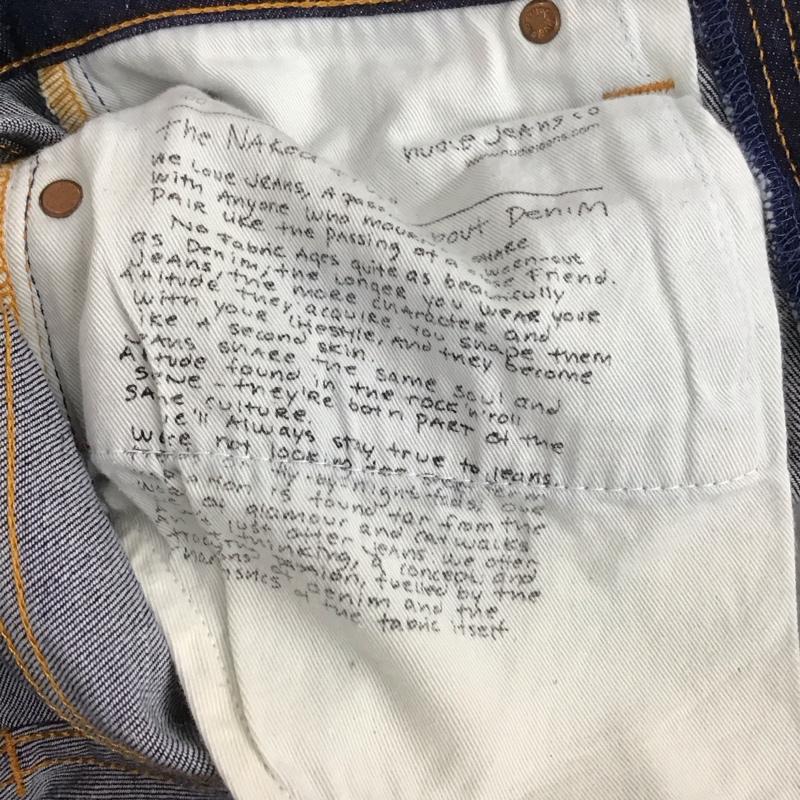 nudie Jeans co
www.nudiejeans.com
The NAKed bout Denim
We Love Jeans, A pass share
with Anyone who mour ween-out
PAIR like the passing of a se Friend.
No fabric Ages quite as beautifully
as Denim, the longer you WEAR your
Jeans, the more character and
Attitude they acquire. You shape them
with your lifestyle, and they become
ike A second skin.
Jeans share the same soul and
Attitude found in the rock'n'roll
they're both PART of the
same culture.
We'll Always stay true to jeans.
We're not looking for
by-night falls, our
is found far from the
glamour and catwalks
just offer jeans. We offer
thinking, a concept and
passion, fuelled by the
of denim and the
of the fabric itself.